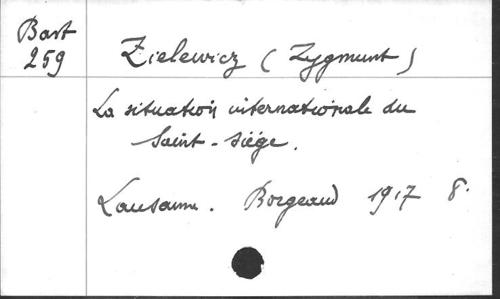 Bast
259
Zielewicz (Zygmunt)
La situation internationale du
Saint-siège.
Lausanne. Borgeaud 1917 8°